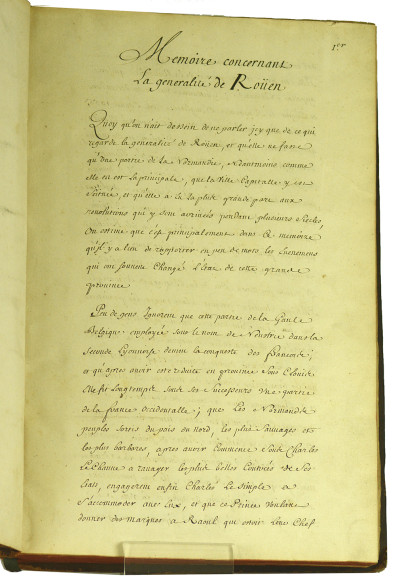 1.er
Memoire concernant
La generalité de Roüen
Quoy qu'on n'ait dessein de ne parler jcy que de ce qui
regarde la generalité de Roüen, et qu'elle ne fasse
qu'une partie de la Normandie, Neantmoins comme
elle en est la principale, que la Ville Capitalle y est
scituée, et qu'elle a la plus grande part aux
revolutions qui y sont arrivées pendant plusieurs siecles,
On estime que c'est principalement dans ce memoire
qu'il y a lieu de raporter en peu de mots les Evenemens
qui ont souvent Changé l'Estat de cette grande
province
Peu de gens Ignorent que cette partie de la Gaule
Belgique employée sous le nom de Neustrie dans la
seconde Lyonnoise devint la conqueste des Francois;
et qu'apres avoir esté reduite en province sous Clovis
Elle fit longtemps sous ses successeurs une partie
de la france Occidentalle; que les Normands
peuples sortis du païs du nord, les plus sauvages et
les plus barbares, apres avoir commencé sous Charles
le Chauve a ravager les plus belles Contrées de ses
Estats, engagerent enfin Charles le simple a
s'accommoder avec Eux, et que ce Prince voulant
donner des marques a Raoul qui estoit leur Chef